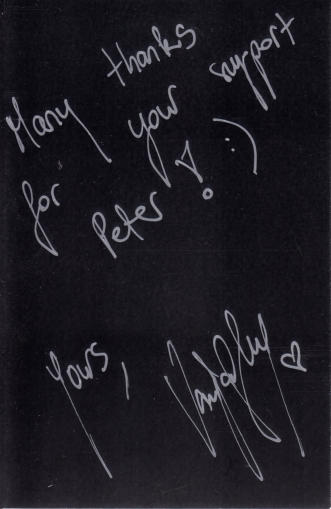 Many thanks
for your support
Peter! :)
Yours,